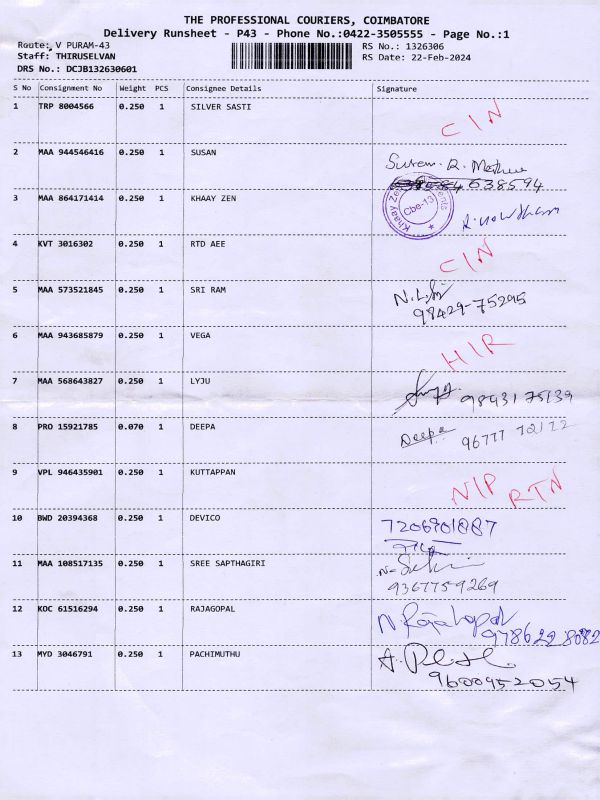 THE PROFESSIONAL COURIERS, COIMBATORE
Delivery Runsheet - P43 - Phone No.:0422-3505555 - Page No.:1
Route: V PURAM-43 RS No.: 1326306
Staff: THIRUSELVAN RS Date: 22-Feb-2024
DRS No.: DCJB132630601
S No Consignment No Weight PCS Consignee Details Signature
1 TRP 8004566 0.250 1 SILVER SASTI CIN
2 MAA 944546416 0.250 1 SUSAN Susan. R. 
638594
3 MAA 864171414 0.250 1 KHAAY ZEN Khaay Zen Cbe-13
4 KVT 3016302 0.250 1 RTD AEE CIN
5 MAA 573521845 0.250 1 SRI RAM
98429-75295
6 MAA 943685879 0.250 1 VEGA HIR
7 MAA 568643827 0.250 1 LYJU 98431 75139
8 PRO 15921785 0.070 1 DEEPA Deepa 96777
9 VPL 946435901 0.250 1 KUTTAPPAN NIP RTN
10 BWD 20394368 0.250 1 DEVICO
11 MAA 108517135 0.250 1 SREE SAPTHAGIRI
9367759269
12 KOC 61516294 0.250 1 RAJAGOPAL N. Rajagopal
978622 8082
13 MYD 3046791 0.250 1 PACHIMUTHU
9600952054